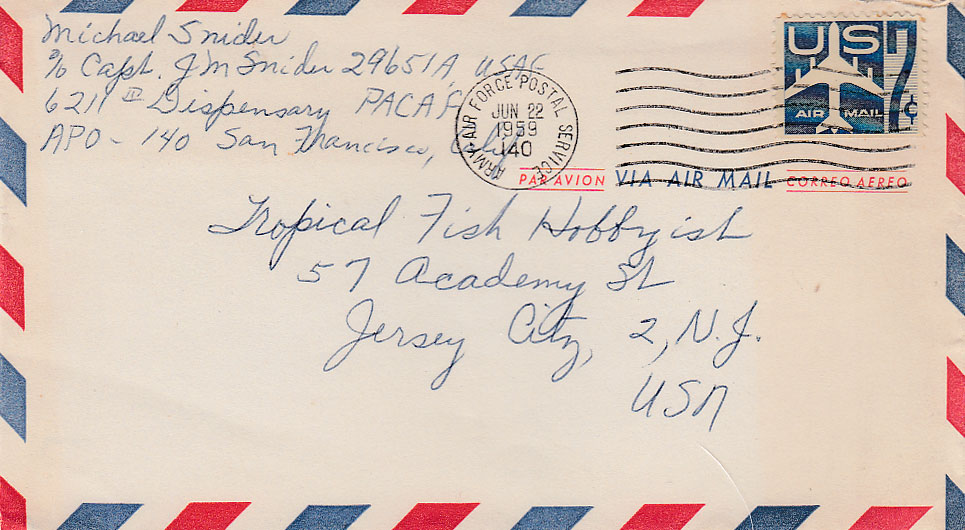 Michael Snider
c/o Capt. J M Snider 29651A, USAF
6211th Dispensary PACAF
APO - 140 San Francisco, Calif
ARMY-AIR FORCE POSTAL SERVICE
JUN 22
1959
140
US 7¢
AIR MAIL
PAR AVION VIA AIR MAIL CORREO AEREO
Tropical Fish Hobbyist
57 Academy St
Jersey City, 2, N.J.
USA